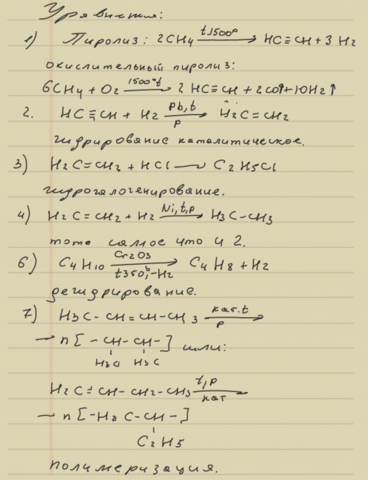 Уравнения:
1) Пиролиз: 2CH₄ —t,1500°→ HC≡CH + 3H₂
окислительный пиролиз:
6CH₄ + O₂ —1500°t→ 2 HC≡CH + 2CO↑ + 10H₂↑
2. HC≡CH + H₂ —Pb,t / P→ H₂C=CH₂
гидрирование каталитическое.
3) H₂C=CH₂ + HCl → C₂H₅Cl
гидрогалогенирование.
4) H₂C=CH₂ + H₂ —Ni,t,p→ H₃C-CH₃
тоже самое что и 2.
6) C₄H₁₀ —Cr₂O₃ / t350°,-H₂→ C₄H₈ + H₂
дегидрирование.
7) H₃C-CH=CH-CH₃ —кат.t / P→
→ n[-CH-CH-] или:
H₃C H₃C
H₂C=CH-CH₂-CH₃ —t,P / кат→
→ n[-H₂C-CH-]
C₂H₅
полимеризация.